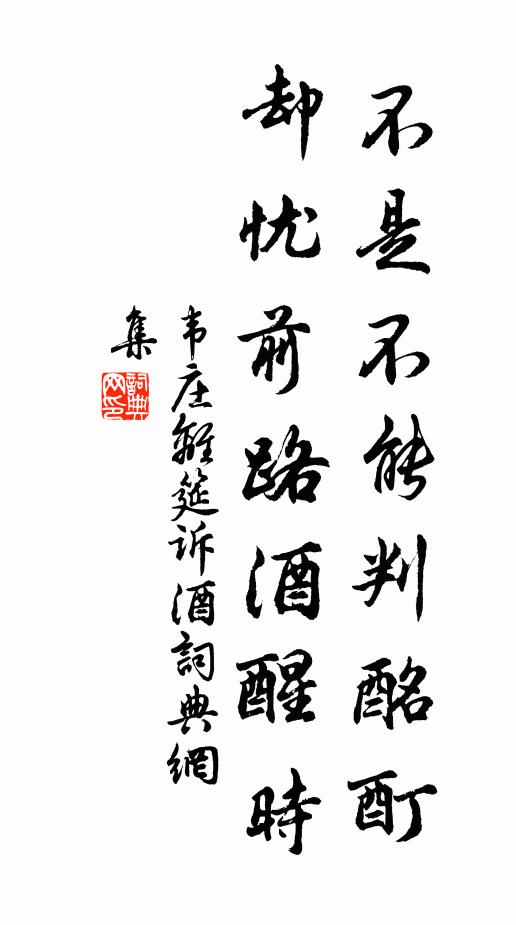 不是不能判酩酊
却忧前路酒醒時
韦庄離筵诉酒詞典網
集
詞典
网印